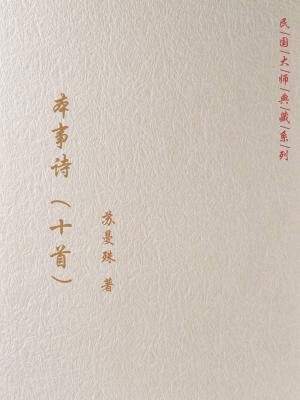 民|国|大|师|典|藏|系|列
本事诗（十首）
苏曼殊 著